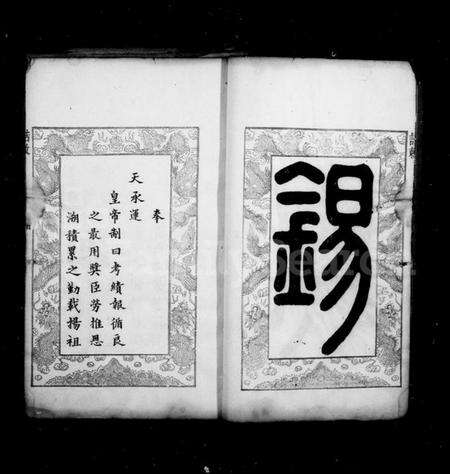 錫
奉
天承運
皇帝制曰考績報循良
之最用奬臣勞推恩
溯積累之勤載揚祖